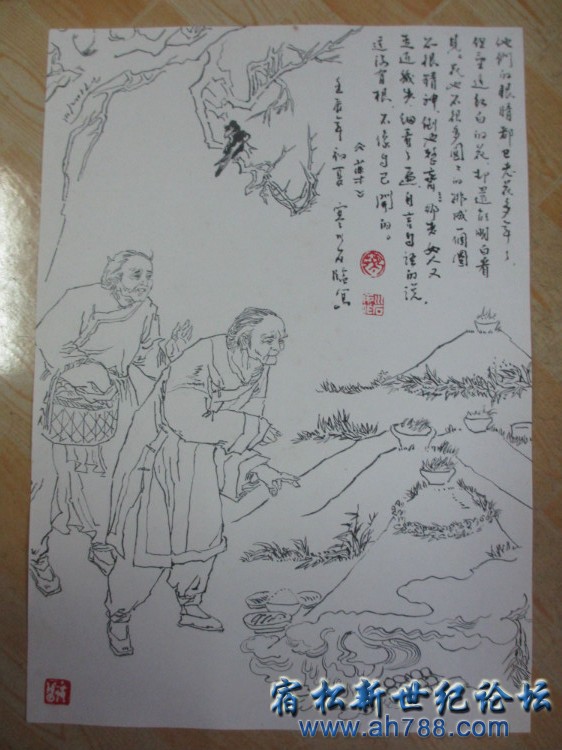 他們的眼睛都已老花多年了、
但望這红白的花，却還能明白看
見。花也不很多圓圓的排成一個圈
不很精神，倒也整齊。那老女人又
走近幾步，细看了一遍，自言自语的说。
這没有根、不像自己開的。
壬辰年初夏
宿松新世纪论坛
www.ah788.com